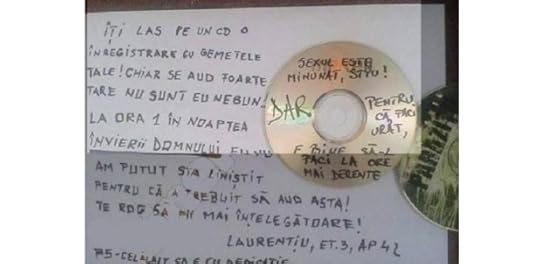 ÎȚI LAS PE UN CD O
ÎNREGISTRARE CU GEMETELE
TALE! CHIAR SE AUD FOARTE
TARE NU SUNT EU NEBUN!
LA ORA 1 ÎN NOAPTEA
ÎNVIERII DOMNULUI EU NU
AM PUTUT STA LINIȘTIT
PENTRU CĂ A TREBUIT SĂ AUD ASTA!
TE ROG SĂ FII MAI ÎNȚELEGĂTOARE!
LAURENȚIU, ET.3, AP 42
PS-CELĂLALT CD E CU DEDICAȚIE
SEXUL ESTE
MINUNAT, ȘTIU!
DAR
PENTRU
CĂ FACI
URÂT,
E BINE SĂ-L
FACI LA ORE
MAI DECENTE